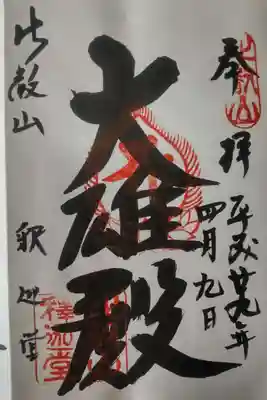 奉拝
平成廿九年
四月九日
大雄殿
比叡山 釈迦堂
釋迦堂